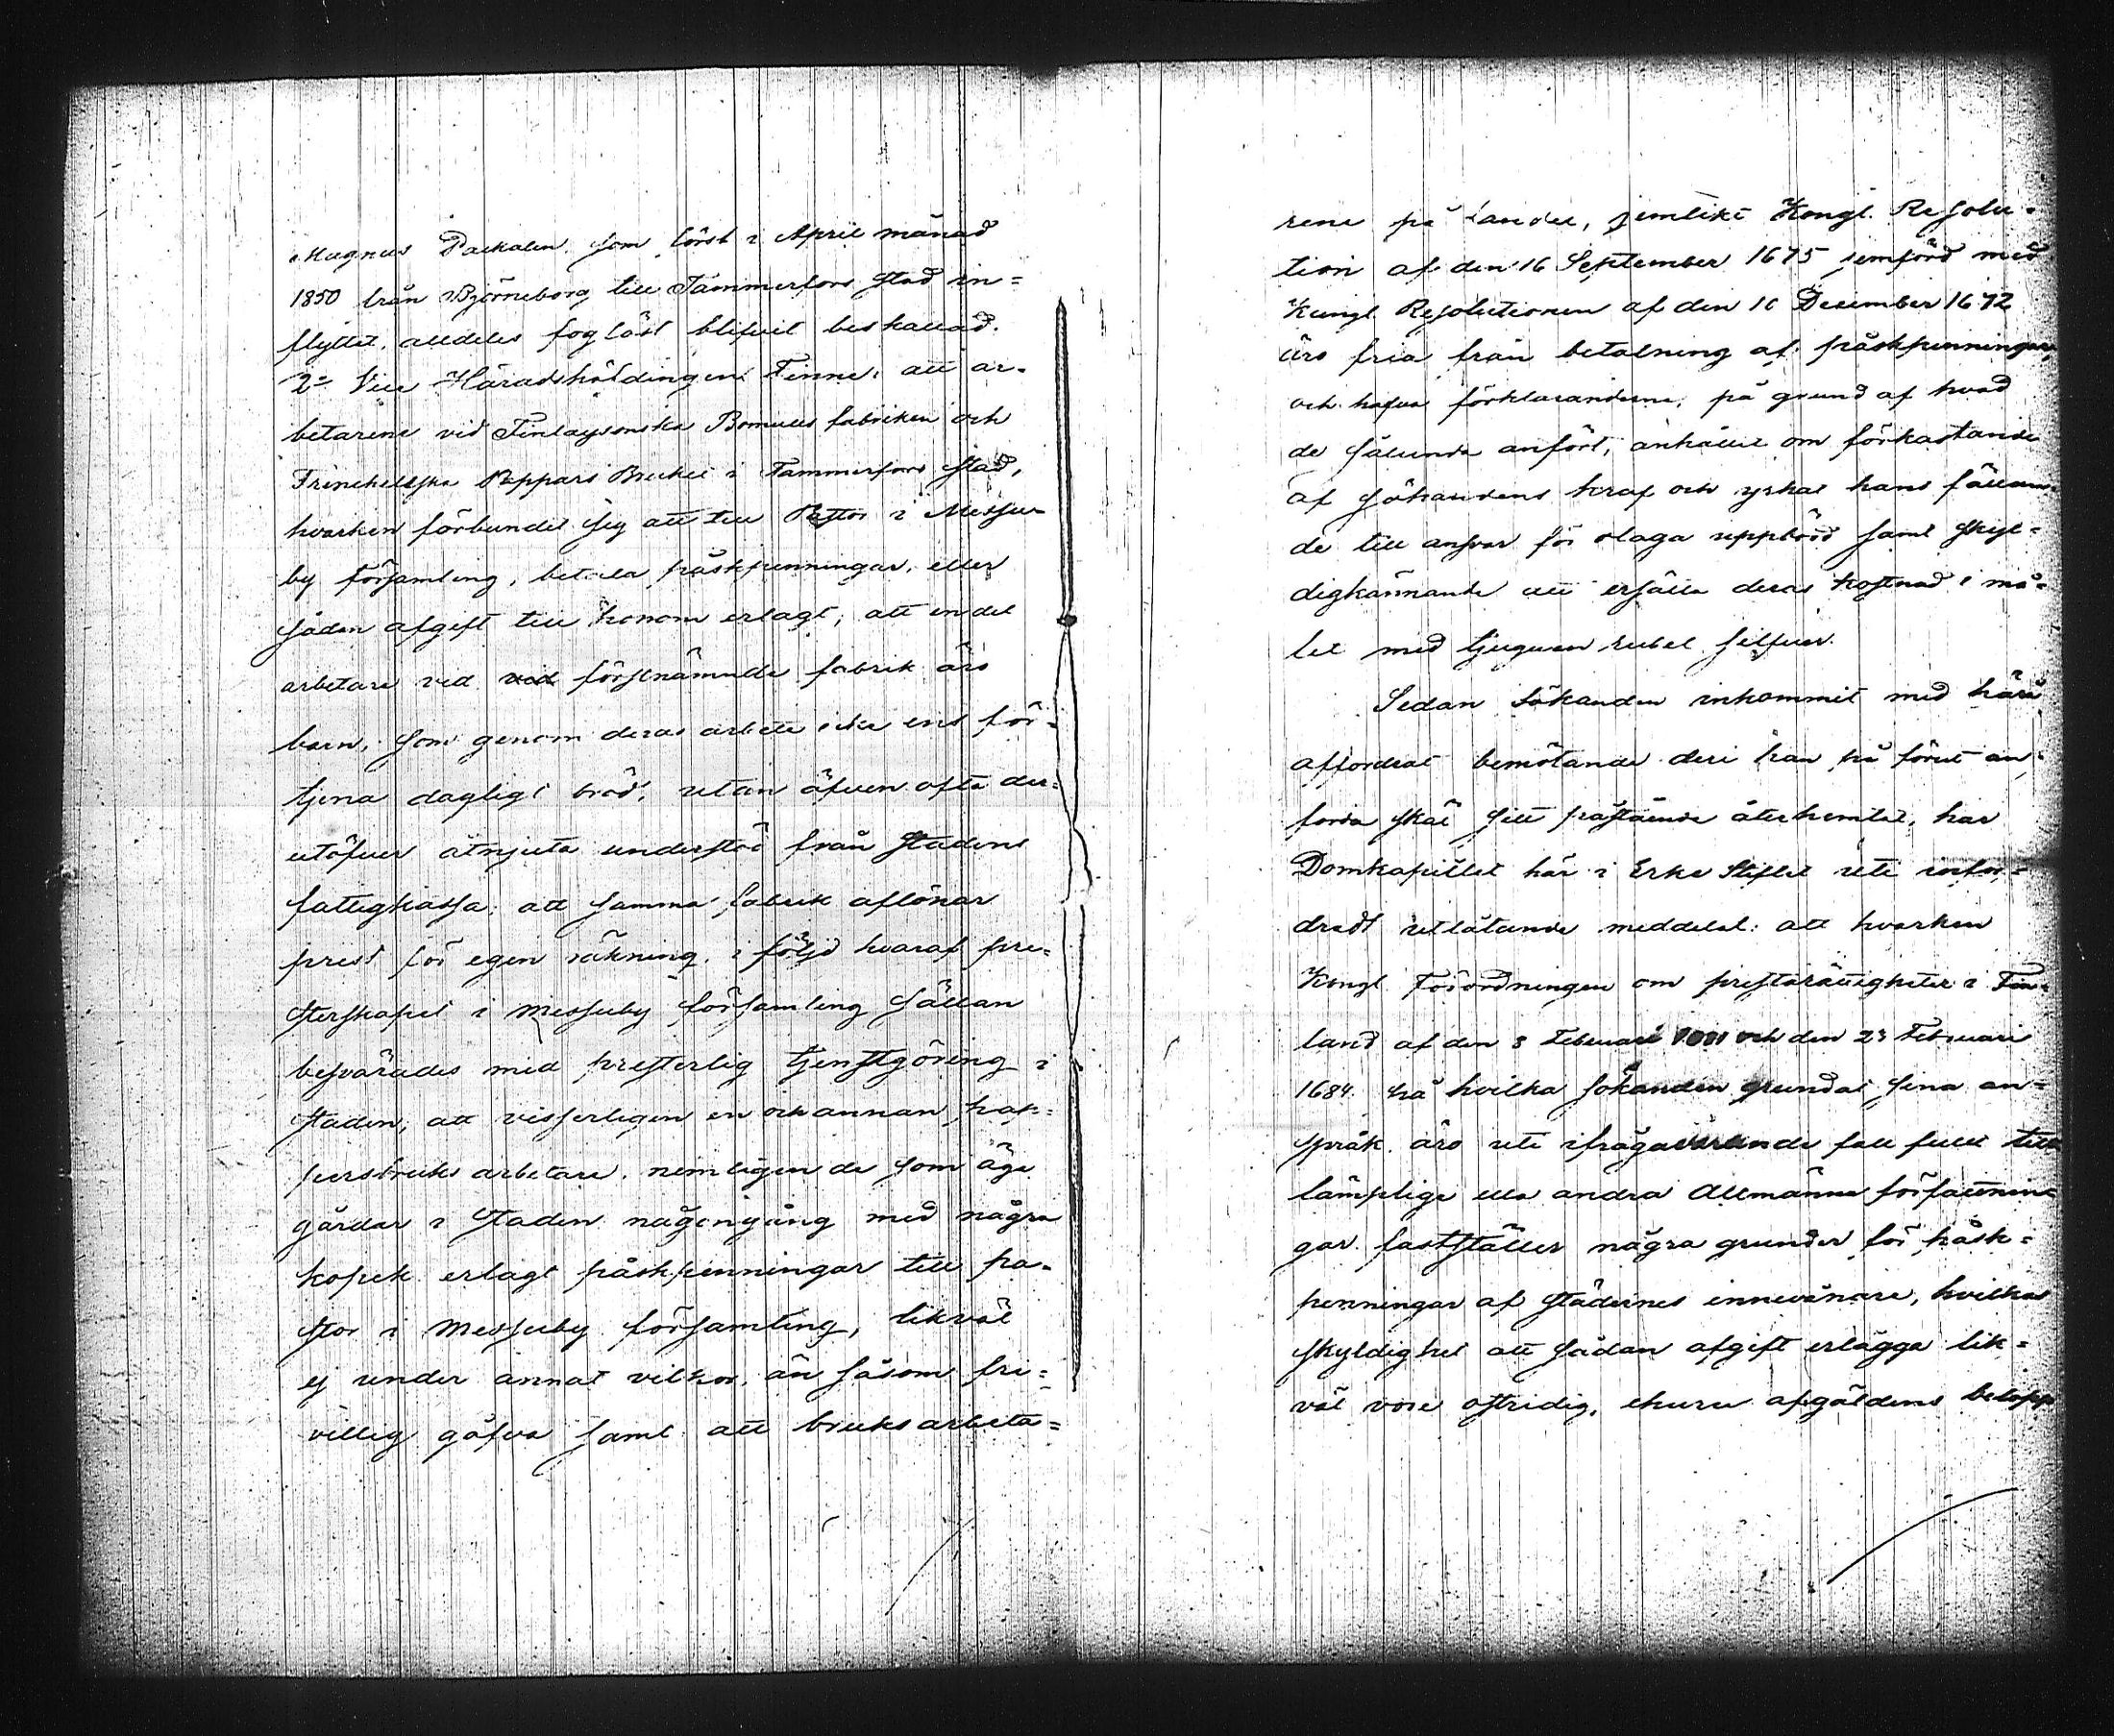 Magnus Packalen som först i April månad
1850 från Björneborg till Tammerfors stad in=
flyttet, alldeles foglöst blifvit beskattad.
2o Vice Häradshöfdingen Finne: att ar=
betarene vid Finlaysonska Bomulls fabriken och
Frenckellska Pappers Bruket i Tammerfors stad,
hvarken förbundet sig att till Pastor i Messu=
by församling, betala påskpenningar, eller
sådan afgift till honom erlagt; att en del
arbetare vid förstnämnde fabrik äro
barn, som genom deras arbete icke ens för=
tjena dagligt bröd, utan äfven ofta der=
utöfver åtnjuta understöd från Stadens
fattigkassa; att samma fabrik aflönar
prest för egen räkning, i följd hvaraf pre=
sterskapet i Messuby församling sällan
besvärades med presterlig tjenstgöring i
staden; att visserligen en och annan pap=
persbruks arbetare, nemligen de som äga
gårdar i Staden någongång med några
kopek erlagt påskpenningar till pa=
stor i Messuby församling, likväl
ej under annat vilkor, än såsom fri=
villig gåfva samt att bruksarbeta=
rene på landet, jemlikt Kongl. Resolu=
tion af den 16 September 1675 jemförd med
Kungl. Resolutionen af den 10 December 1672
äro fria från betalning af påskpenningar,
och hafva förklaranderne, på grund af hvad
de sålunda anfört, anhållit om förkastande
af sökandens kraf och yrkat hans fällan=
de till ansvar för olaga uppbörd samt skyl=
digkännande att ersätta deras kostnad i må=
let med tjugusen rubel silfver.
Sedan Sökanden inkommit med häröfver
affordrat bemötande deri han på förut an=
förda skäl sitt påstående återhemtat, har
Domkapitlet här i Erke Stiftet uti infor=
dradt utlåtande meddelat: att hvarken
Kongl. Förordningen om prestarättigheter i Fin=
land af den 8 Februari och den 23 Februari
1684 på hvilka Sökanden grundat sina an=
språk äro uti ifrågavarande fall fullt till
lämplige eller andra Allmänna författnin=
gar fastställer några grunder för påsk=
penningar af städernes innevånare, hvilkas
skyldighet att sådan afgift erlägga lik=
väl vore ostridig, ehuru afgäldens belopp